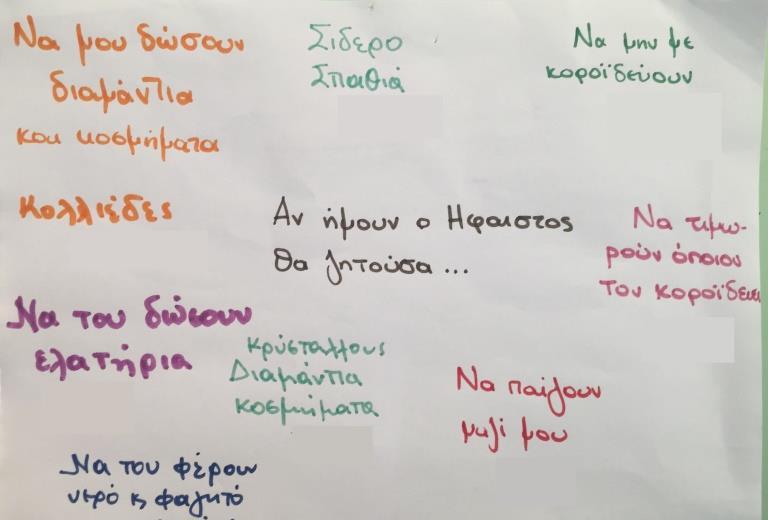 Να μου δώσουν
διαμάντια
και κοσμήματα
Σιδερο
Σπαθιά
Να μην με
κοροϊδεύουν
Κολλιέδες
Αν ήμουν ο Ηφαιστος
θα ζητούσα ...
Να τιμω-
ρούν όποιον
τον κοροϊδεύει
Να του δώσουν
ελατήρια
κρύσταλλους
Διαμάντια
κοσμήματα
Να παίζουν
μαζί μου
Να του φέρουν
νερό κ φαγητό